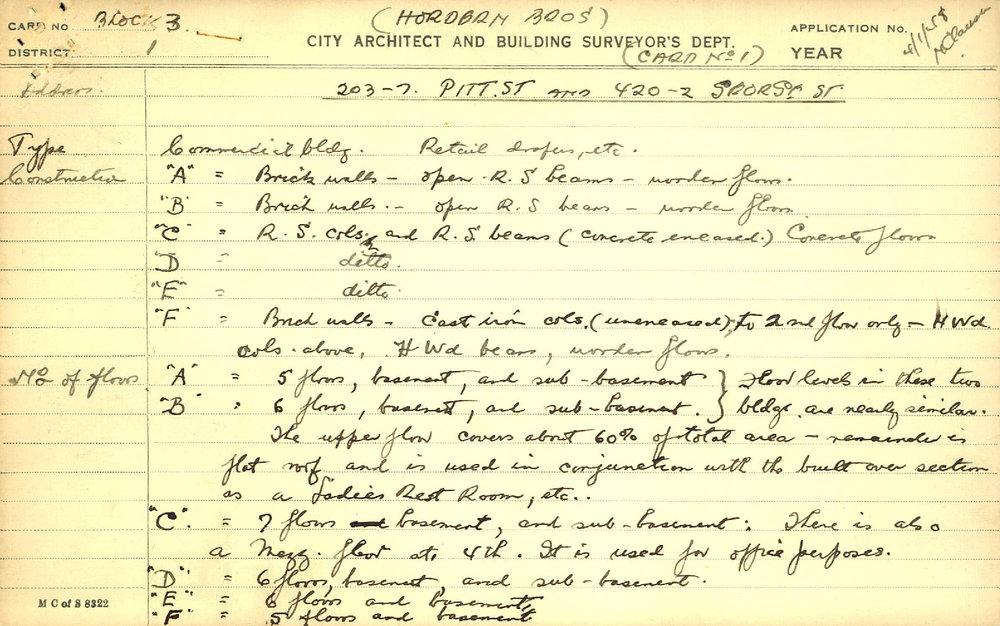 CARD No Block 3. (HORDERN BROS) APPLICATION No. 8/1/58
DISTRICT. 1 CITY ARCHITECT AND BUILDING SURVEYOR'S DEPT. YEAR
(CARD No 1)
Address. 203-7. PITT. ST and 420-2 GEORGE ST
Type Commercial bldg. Retail drapers, etc.
Construction "A" = Brick walls - open R.S beams - wooden floors.
"B" = Brick walls. - open R.S beams - wooden floors
"C" = R.S. cols. and R.S. beams (concrete encased.) Concrete floors
"D" = ditto.
"E" = ditto
"F" = Brick walls - Cast iron cols. (unencased), to 2nd floor only - H Wd
cols. above, H Wd beams, wooden floors.
No of floors "A" = 5 floors, basement, and sub-basement } Floor levels in these two
"B" = 6 floors, basement, and sub-basement. } bldgs. are nearly similar.
The upper floor covers about 60% of total area - remainder is
flat roof and is used in conjunction with the built over section
as a Ladies Rest Room, etc..
"C". = 7 floors basement, and sub-basement: There is also
a Mezz. floor at 4th. It is used for office purposes.
"D" = 6 floors, basement, and sub-basement.
"E" = 6 floors and basement,
"F" = 5 floors and basement
M C of S 8322